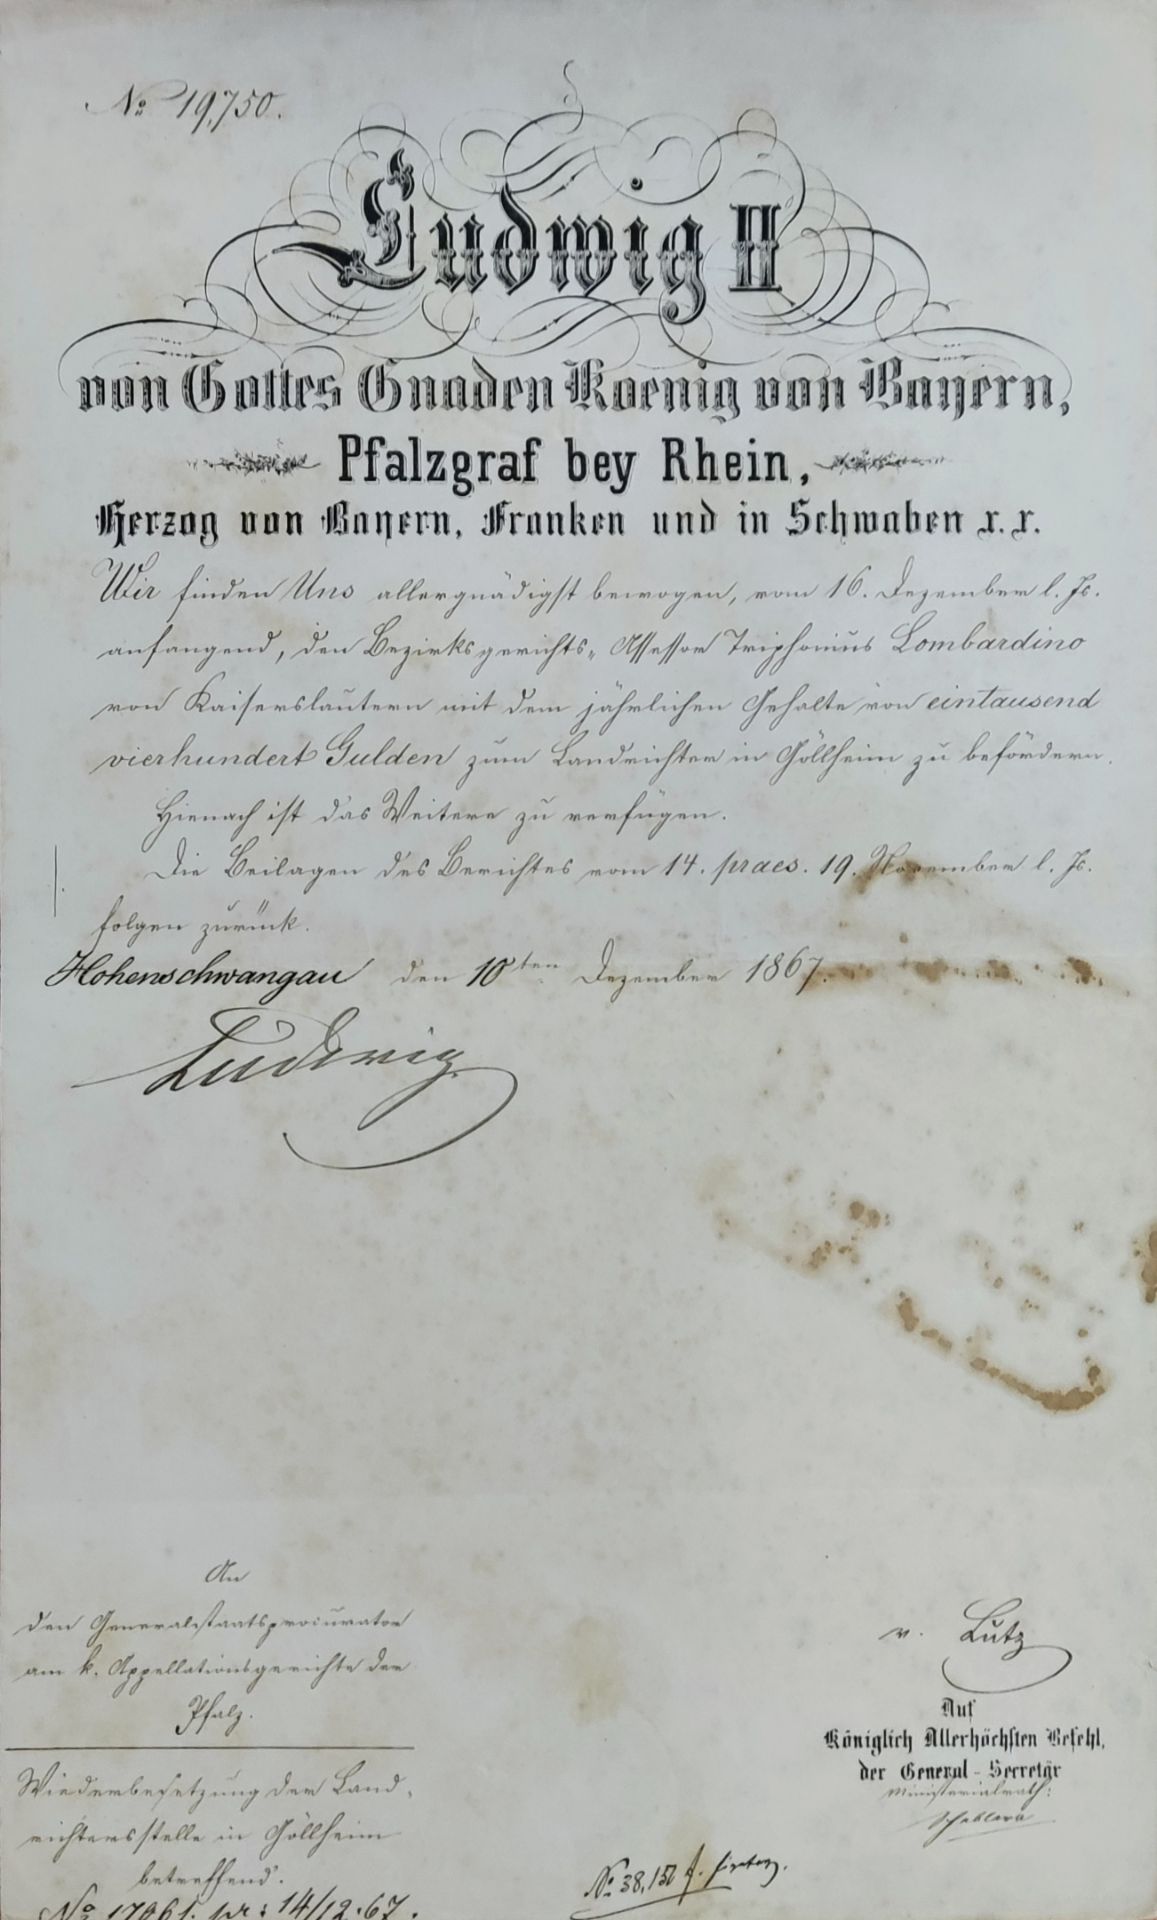 No 19,750.
Ludwig II
von Gottes Gnaden Koenig von Bayern,
Pfalzgraf bey Rhein,
Herzog von Bayern, Franken und in Schwaben r. r.
Wir finden Uns allergnädigst bewogen, vom 16. Dezember l. Js.
anfangend, den Bezirksgerichts-Assessor Triphonius Lombardino
von Kaiserslautern mit dem jährlichen Gehalte von eintausend
vierhundert Gulden zum Landrichter in Göllheim zu befördern.
Hienach ist das Weitere zu verfügen.
Die Beilagen des Berichtes vom 14. praes. 19. November l. Js.
folgen zurück.
Hohenschwangau den 10ten Dezember 1867.
Ludwig
An
den Generalstaatsprocurator
am k. Appellationsgerichte der
Pfalz.
v. Lutz
Auf
Königlich Allerhöchsten Befehl,
der General-Secretär
Ministerialrath:
Wiederbesetzung der Land-
richtersstelle in Göllheim
betreffend.
No 38,150
No 17961. pr: 14/12.67.